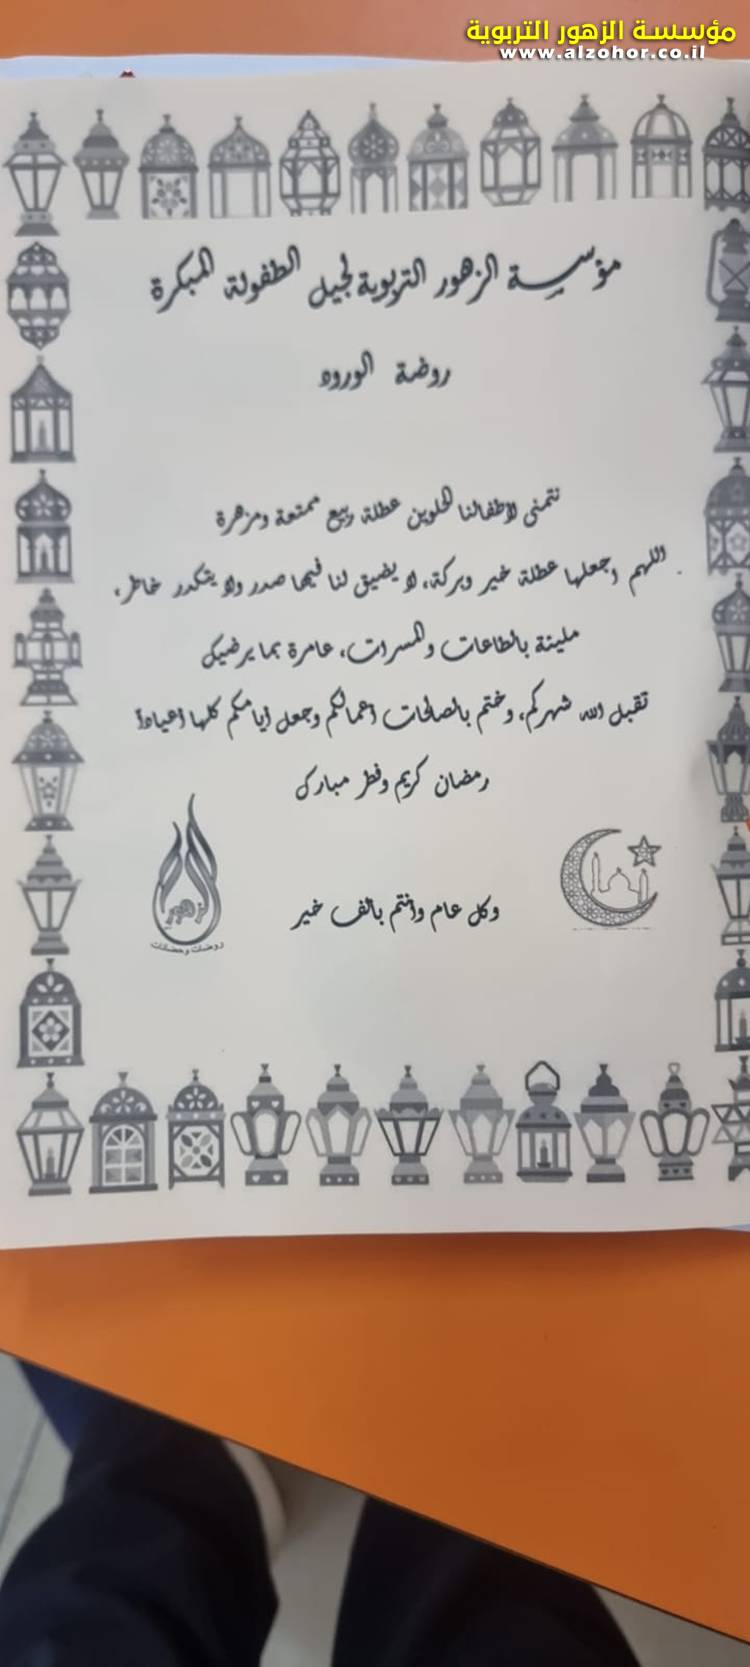 مؤسسة الزهور التربوية
www.alzohor.co.il
مؤسسة الزهور التربوية لجيل الطفولة المبكرة
روضة الورود
نتمنى لأطفالنا الحلوين عطلة ربيع ممتعة ومزهرة
اللهم اجعلها عطلة خير وبركة، لا يضيق لنا فيها صدر ولا يتكدر خاطر،
مليئة بالطاعات والمسرات، عامرة بما يرضيك
تقبل الله شهركم، وختم بالصالحات أعمالكم وجعل أيامكم كلها أعياداً
رمضان كريم وفطر مبارك
وكل عام وأنتم بألف خير
زهور
روضات وحضانات